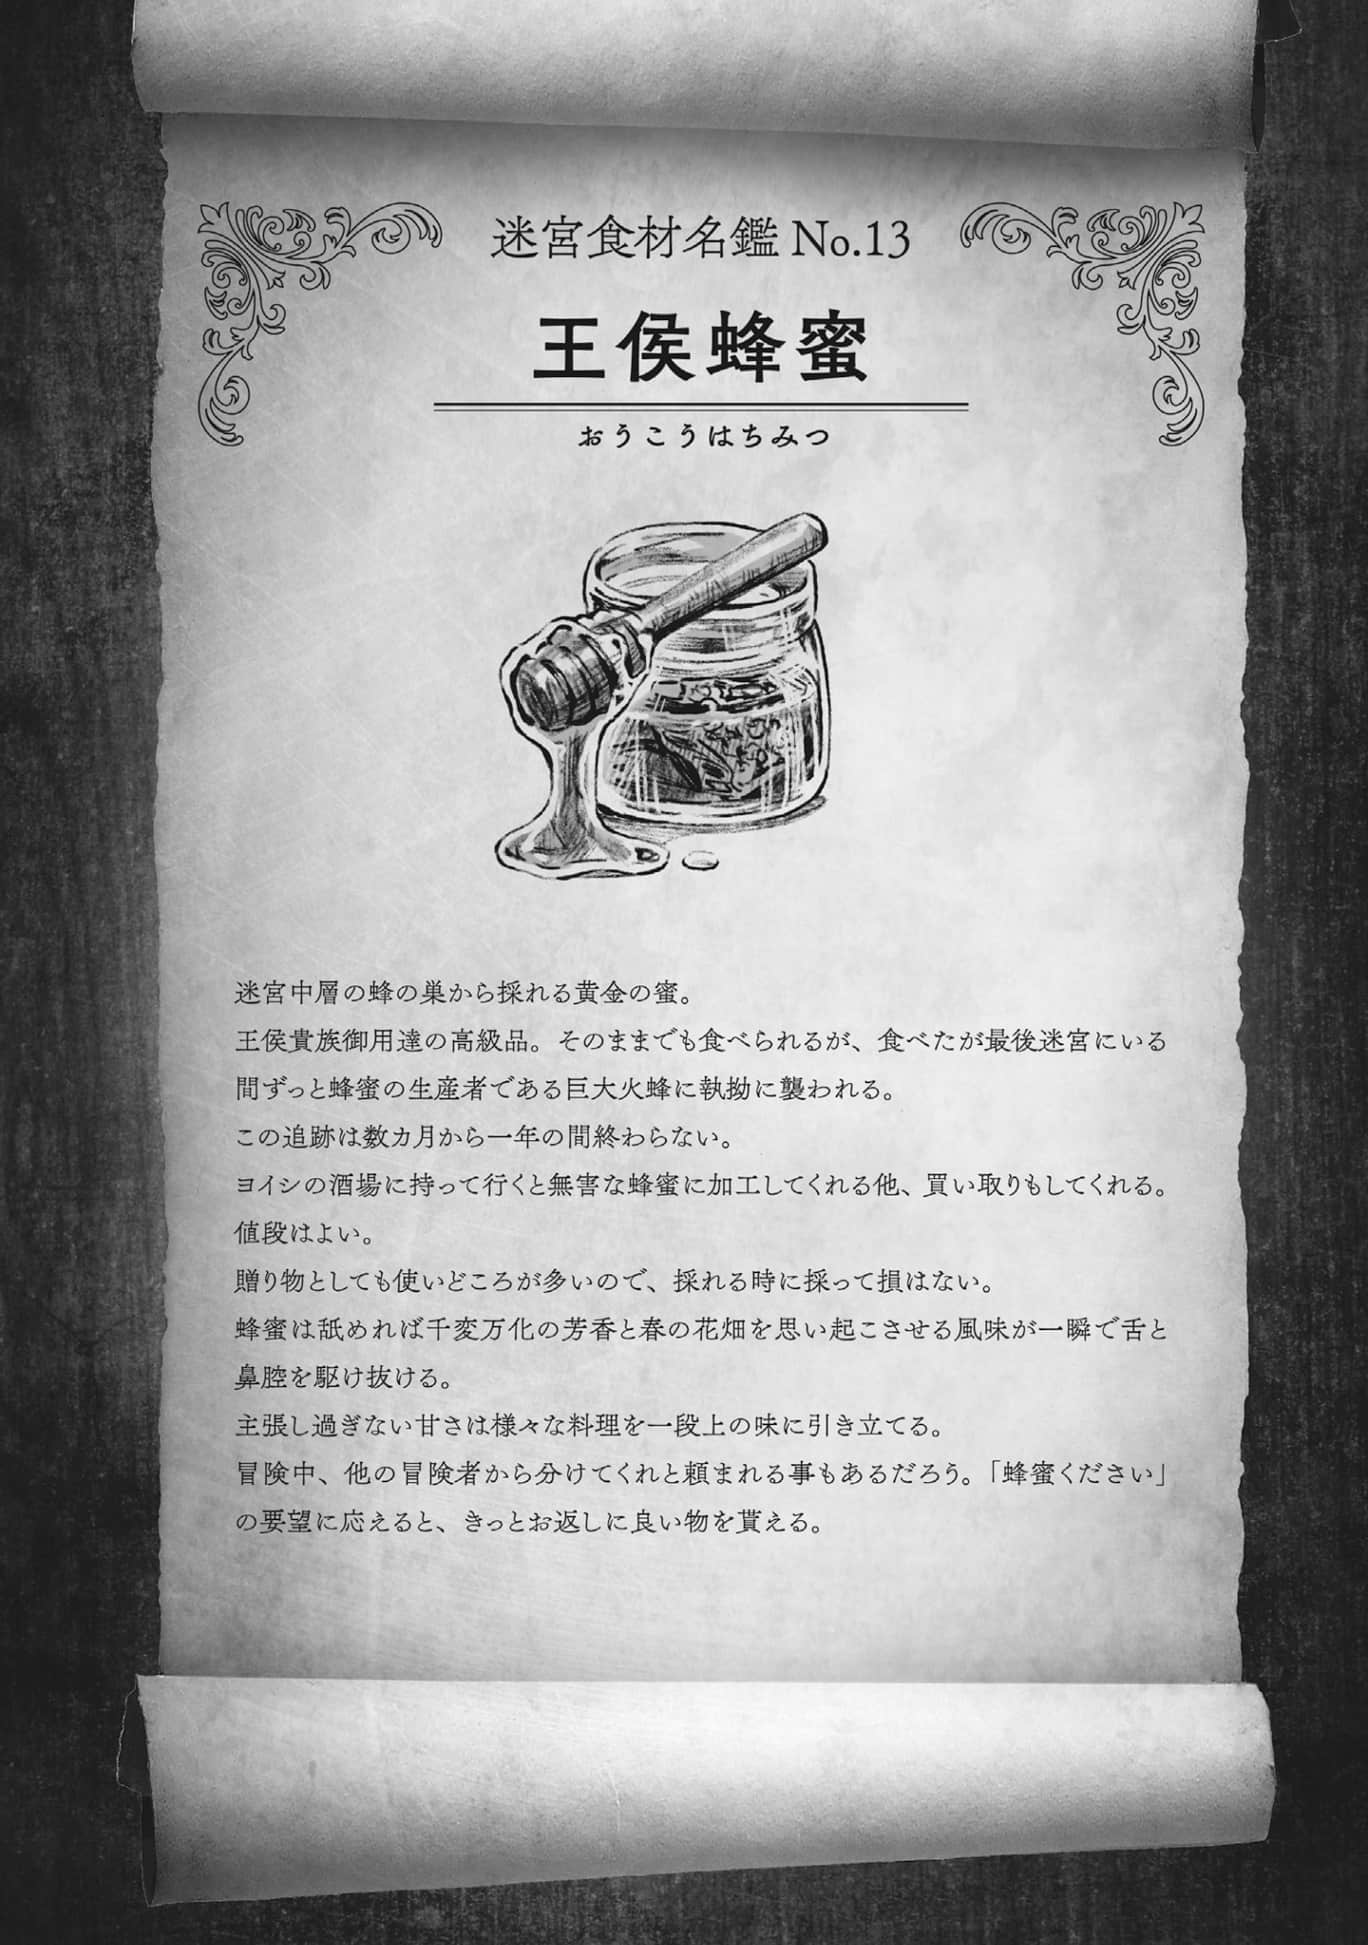 迷宮食材名鑑 No.13
王侯蜂蜜
おうこうはちみつ
迷宮中層の蜂の巣から採れる黄金の蜜。
王侯貴族御用達の高級品。そのままでも食べられるが、食べたが最後迷宮にいる
間ずっと蜂蜜の生産者である巨大火蜂に執拗に襲われる。
この追跡は数カ月から一年の間終わらない。
ヨイシの酒場に持って行くと無害な蜂蜜に加工してくれる他、買い取りもしてくれる。
値段はよい。
贈り物としても使いどころが多いので、採れる時に採って損はない。
蜂蜜は舐めれば千変万化の芳香と春の花畑を思い起こさせる風味が一瞬で舌と
鼻腔を駆け抜ける。
主張し過ぎない甘さは様々な料理を一段上の味に引き立てる。
冒険中、他の冒険者から分けてくれと頼まれる事もあるだろう。「蜂蜜ください」
の要望に応えると、きっとお返しに良い物を貰える。